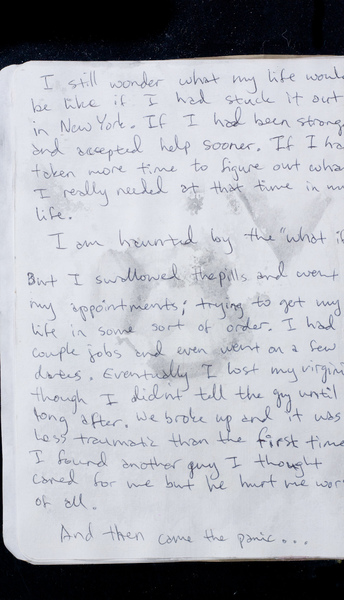 I still wonder what my life woul
be like if I had stuck it out
in New York. If I had been strong
and accepted help sooner. If I ha
taken more time to figure out wha
I really needed at that time in m
life.
I am haunted by the "what if
But I swallowed the pills and went
my appointments; trying to get my
life in some sort of order. I had
couple jobs and even went on a few
dates. Eventually I lost my virgini
though I didnt tell the guy until
long after. We broke up and it was
less traumatic than the first time
I found another guy I thought
cared for me but he hurt me wor
of all.
And then came the panic...